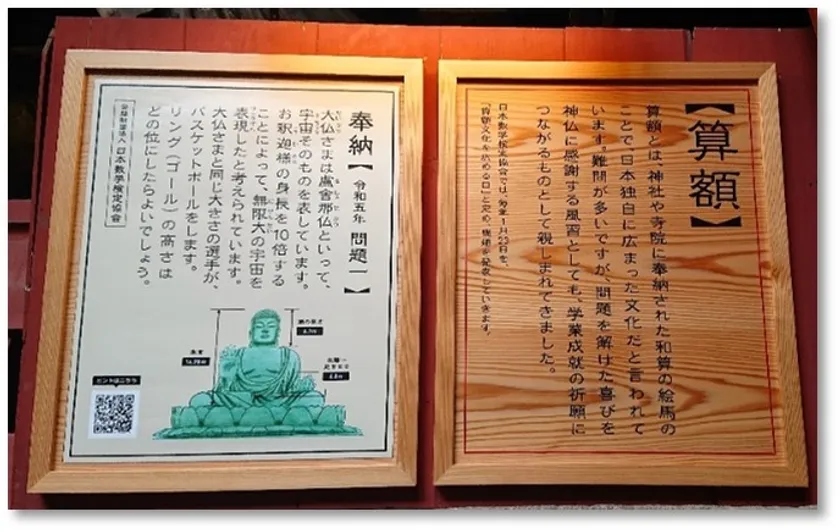 【算額】
算額とは、神社や寺院に奉納された和算の絵馬の
ことで、日本独自に広まった文化だと言われて
います。難問が多いですが、問題を解けた喜びを
神仏に感謝する風習としても、学業成就の祈願に
つながるものとして親しまれてきました。
日本数学検定協会では、毎年1月23日を、
「算額文化を広める日」と定め、情報を発信していきます。
奉納【令和五年 問題一】
大仏さまは盧舎那仏といって、
宇宙そのものを表しています。
お釈迦様の身長を10倍する
ことによって、無限大の宇宙を
表現したと考えられています。
大仏さまと同じ大きさの選手が、
バスケットボールをします。
リング(ゴール)の高さは
どの位にしたらよいでしょう。
公益財団法人 日本数学検定協会
ヒントはこちら